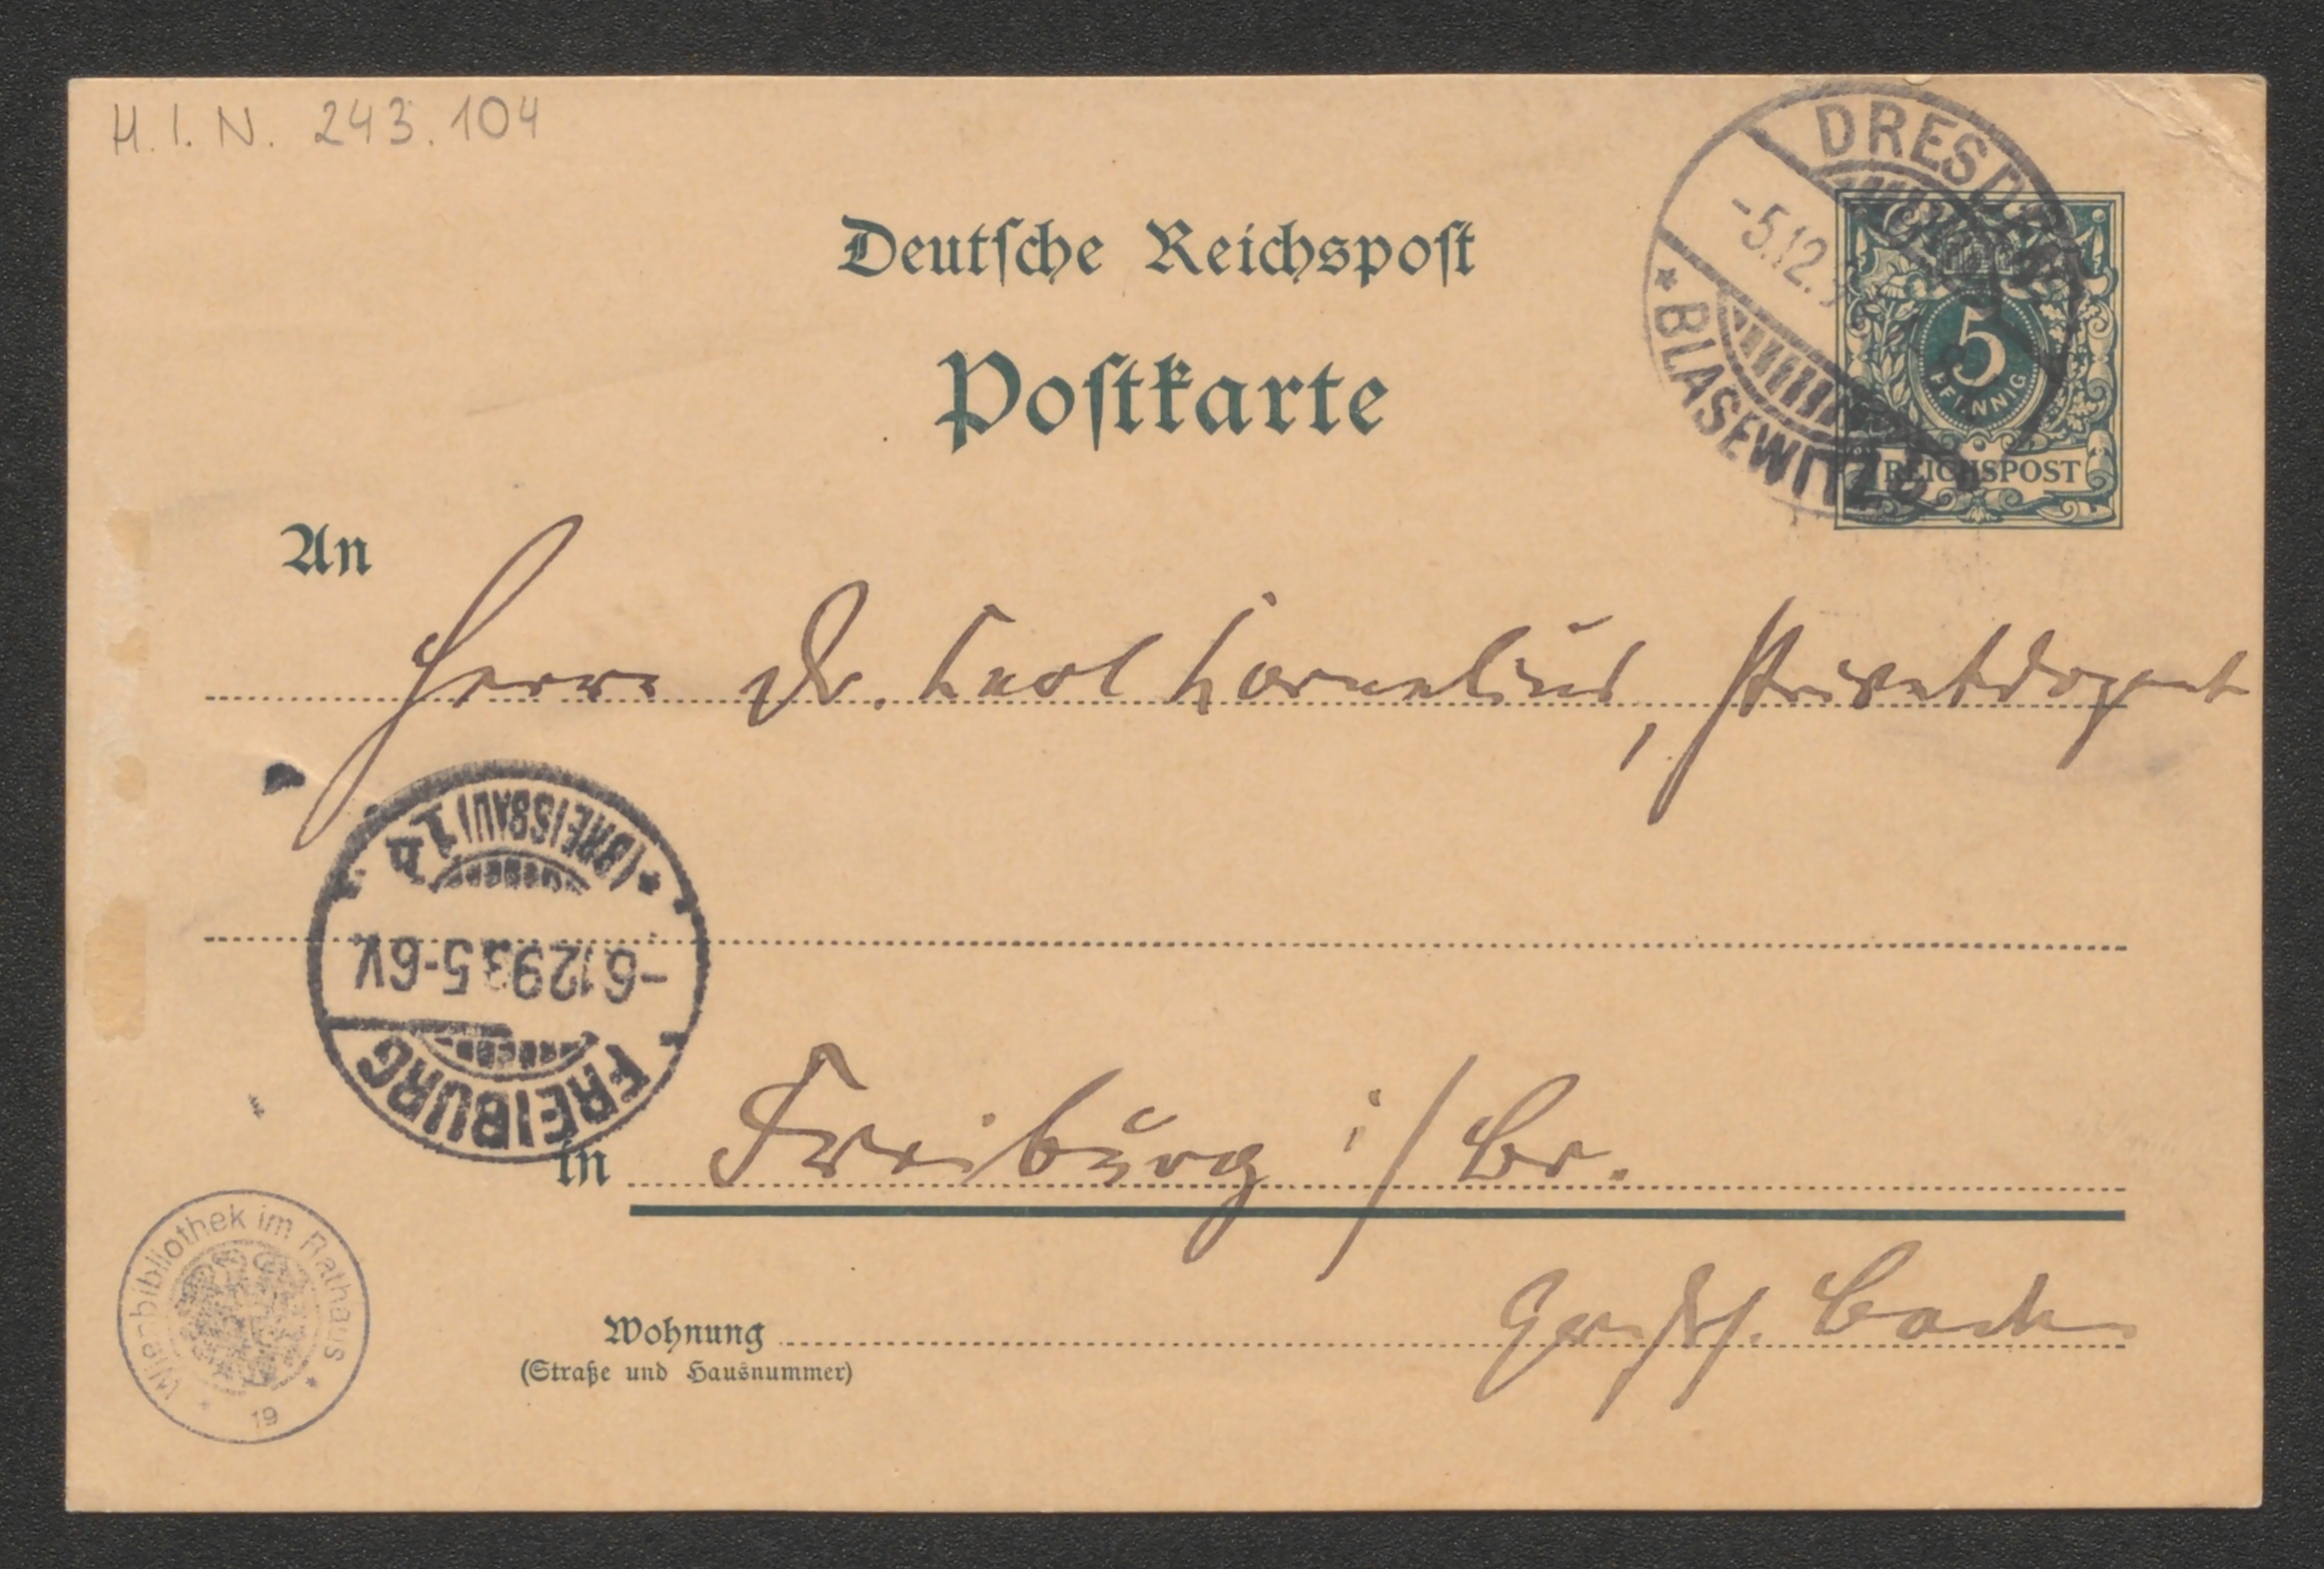 H.I.N. 243.104
DRESDEN
-5.12.
* BLASEWITZ
Deutsche Reichspost
Postkarte
5
PFENNIG
REICHSPOST
An
Herrn Dr. Carl Cornelius, Privatdozent
FREIBURG
-6.12.93 5-6V.
* (BREISGAU)
in Freiburg i/Br.
Wohnung
(Straße und Hausnummer)
Wienbibliothek im Rathaus
* 19 *